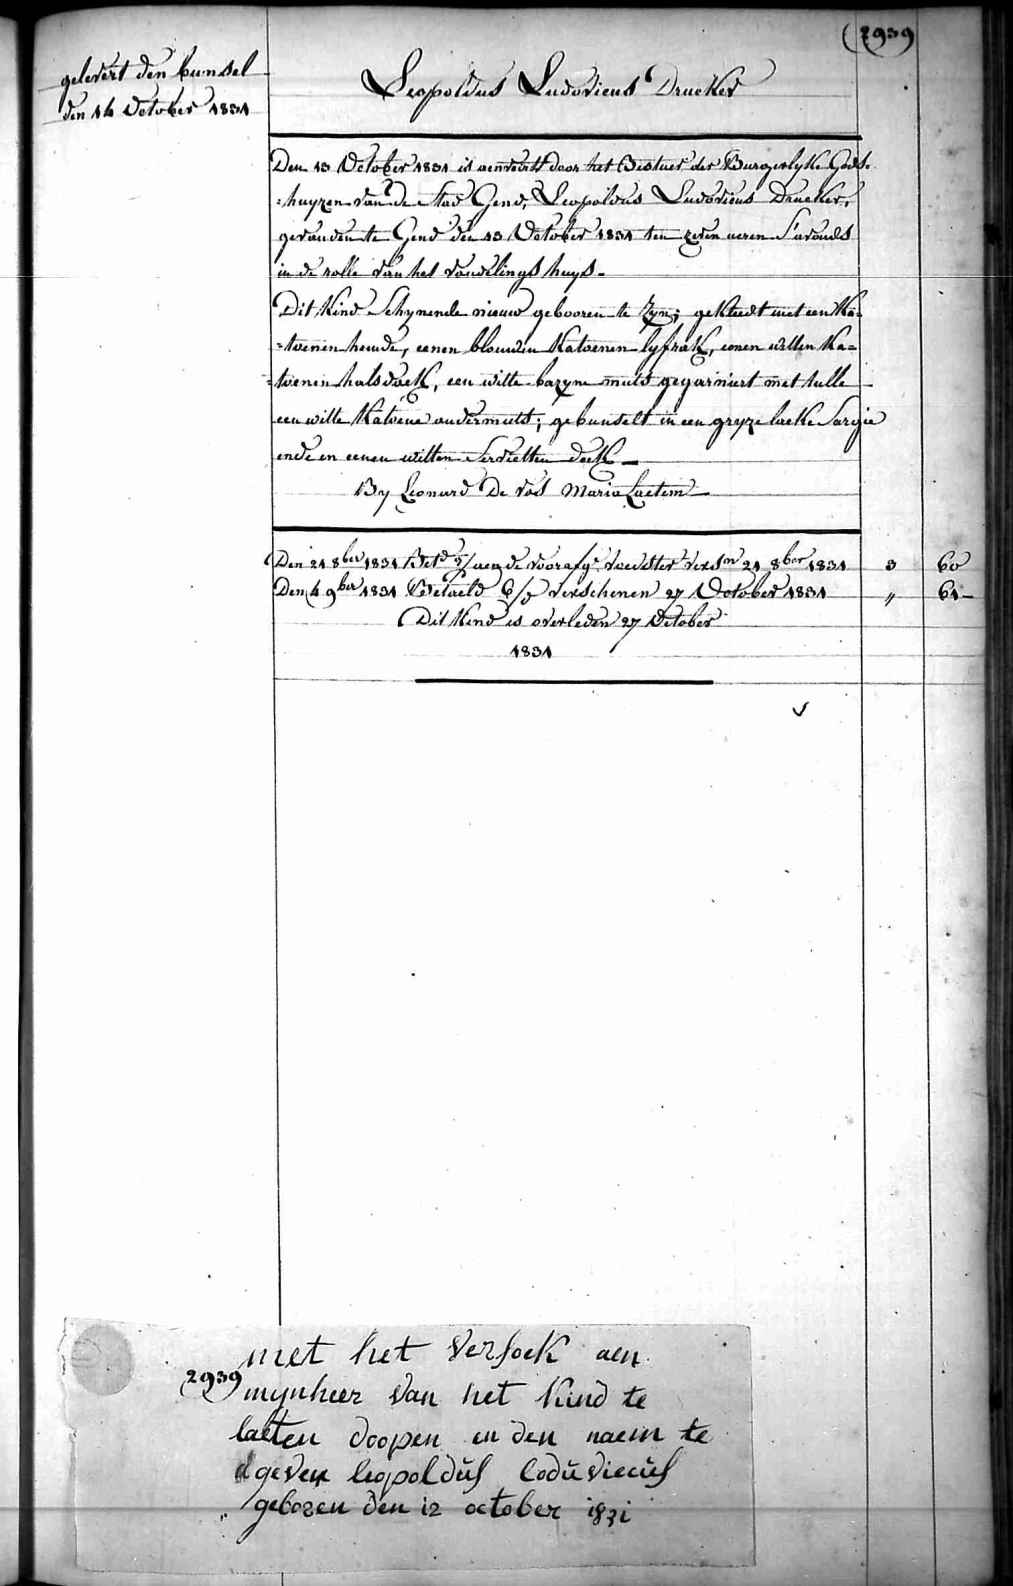 (2939)
gelevert den bunsel
den 14 October 1831
Leopoldus Ludovicus Drucker
Den 13 October 1831 is aenveert door het Bestuer der Burgerlyke Gods-
=huyzen van de Stad Gend, Leopoldus Ludovicus Drucker,
gevonden te Gend den 13 October 1831 ten zeven ueren S'avonds
in de rolle van het vondelingshuys-
Dit Kind Schynende nieuw gebooren te Zyn; gekleedt met een Ka=
=toenen hemde, eenen blauwen Katoenen lyfrok, eenen witten Ka=
=toenen halsdoek, een witte bazyne muts gegarniert met tulle
een witte Katoene ondermuts; gebunselt in een gryze lacke Sargie
ende en eenen witten Servietten doek-
By Leonard De Vos Maria Laetem
Den 21 8ber 1831 Bet^d aen de voorafg^e voedster versn 21 8ber 1831 3 60
Den 4 9ber 1831 Betaeld verschenen 27 October 1831 " 61-
Dit Kind is overleden 27 October
1831
met het versoek aen
(2939)
mynheer van het kind te
laeten doopen en den naem te
geven leopoldus Loduviecus
geboren den 12 october 1831